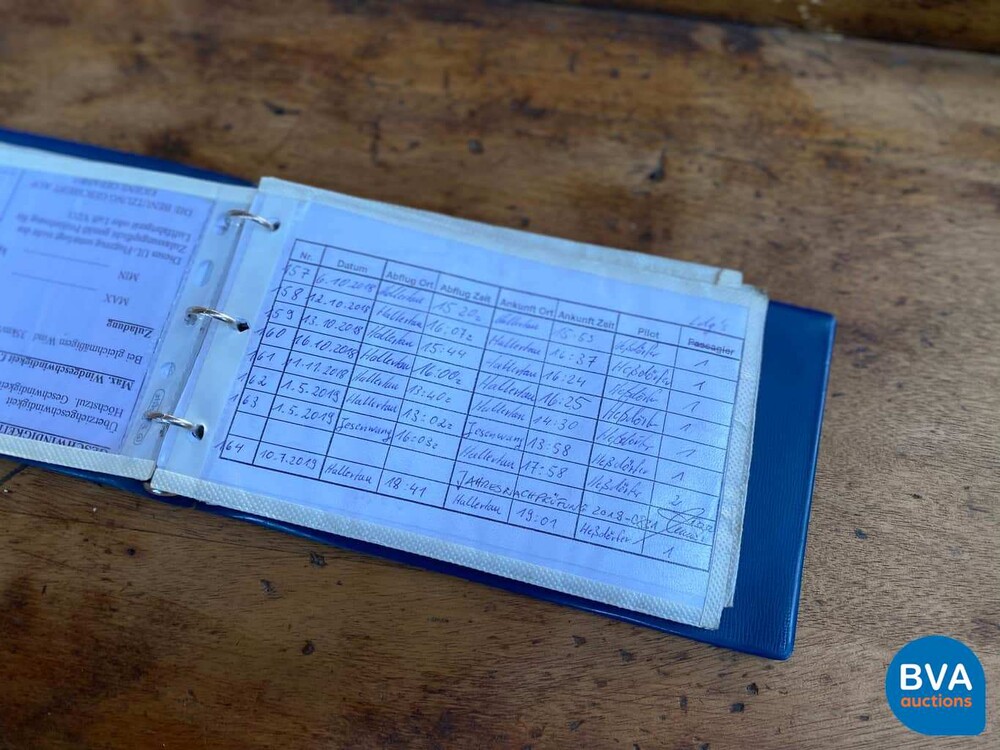 Nr. Datum Abflug Ort Abflug Zeit Ankunft Ort Ankunft Zeit Pilot Passagier
157 6.10.2018 Hallertau 15 20z Hallertau Heßdörfer 1
158 12.10.2018 Hallertau 16:07z Hallertau 16:37 Heßdörfer 1
159 13.10.2018 Hallertau 15:44 Hallertau 16:24 Heßdörfer 1
160 16.10.2018 Hallertau 16:00z Hallertau 16:25 Heßdörfer 1
161 11.11.2018 Hallertau 13:40z Hallertau 14:30 Heßdörfer 1
162 1.5.2019 Hallertau 13:02z Jesenwang 13:58 Heßdörfer
163 1.5.2019 Jesenwang 16:03z Hallertau 17:58 Heßdörfer 2
JAHRESNACHPRÜFUNG 2018
164 10.7.2019 Hallertau 18:41 Hallertau 19:01 Heßdörfer 1
DIE BENUTZUNG GESCHIEHT AUF
Dieses UL-Flugzeug unterliegt nicht der
MIN
MAX
Zuladung
Bei gleichmäßigem Wind
Max. Windgeschwindigkeit
Höchstzul. Geschwindigkeit
Überziehgeschwindigkeit
GESCHWINDIGKEIT
BVA
auctions